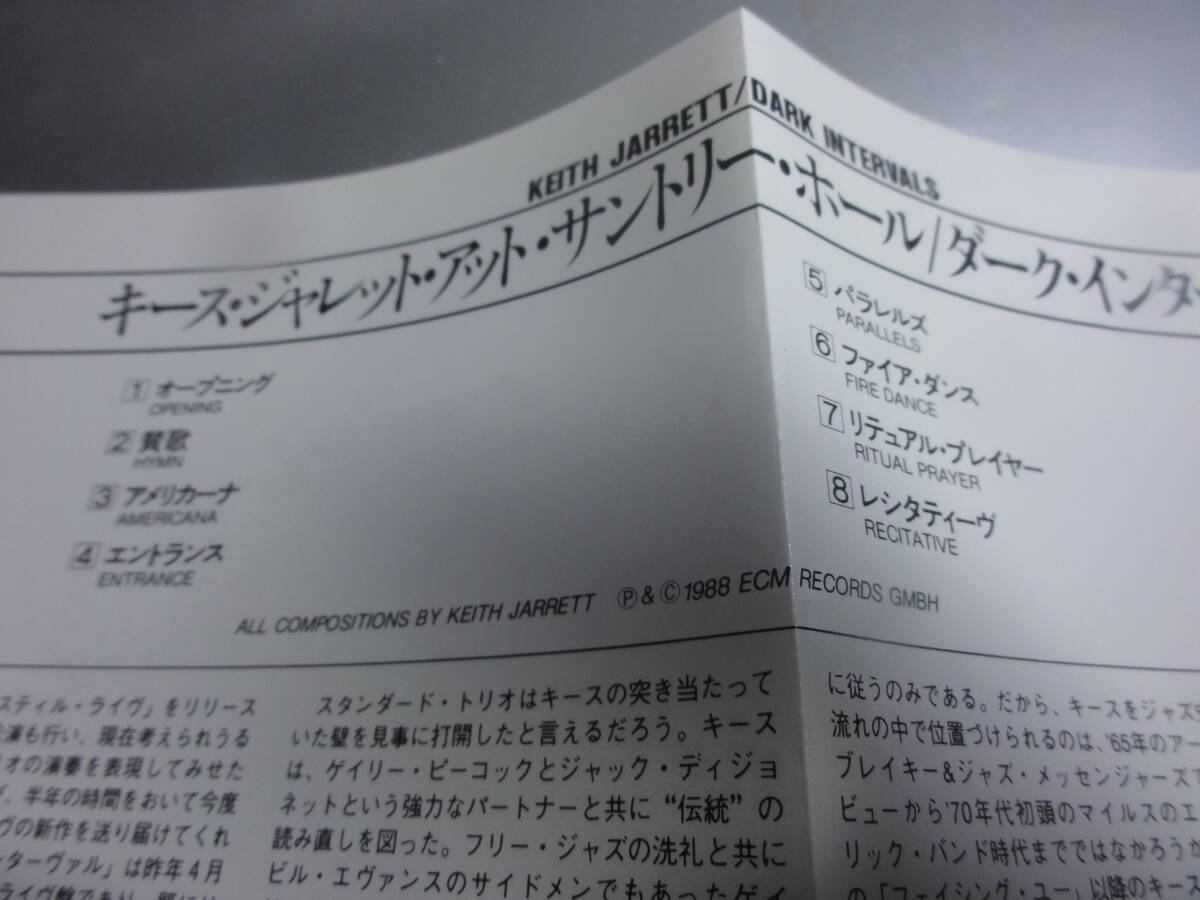 KEITH JARRETT/DARK INTERVALS
キース・ジャレット・アット・サントリー・ホール/ダーク・インター
1 オープニング
OPENING
2 賛歌
HYMN
3 アメリカーナ
AMERICANA
4 エントランス
ENTRANCE
5 パラレルズ
PARALLELS
6 ファイア・ダンス
FIRE DANCE
7 リテュアル・プレイヤー
RITUAL PRAYER
8 レシタティーヴ
RECITATIVE
ALL COMPOSITIONS BY KEITH JARRETT Ⓟ & © 1988 ECM RECORDS GMBH
スティル・ライヴ」をリリース
演も行い、現在考えられうる
オの演奏を表現してみせた
、半年の時間をおいて今度
ヴの新作を送り届けてくれ
ンターヴァル」は昨年4月
ライヴ盤であり、既に
スタンダード・トリオはキースの突き当たって
いた壁を見事に打開したと言えるだろう。キース
は、ゲイリー・ピーコックとジャック・ディジョ
ネットという強力なパートナーと共に“伝統”の
読み直しを図った。フリー・ジャズの洗礼と共に
ビル・エヴァンスのサイドメンでもあったゲイ
に従うのみである。だから、キースをジャズの
流れの中で位置づけられるのは、'65年のアー
ブレイキー&ジャズ・メッセンジャーズで
ビューから'70年代初頭のマイルスのエ
リック・バンド時代まででではなかろうか
の「フェイシング・ユー」以降のキース